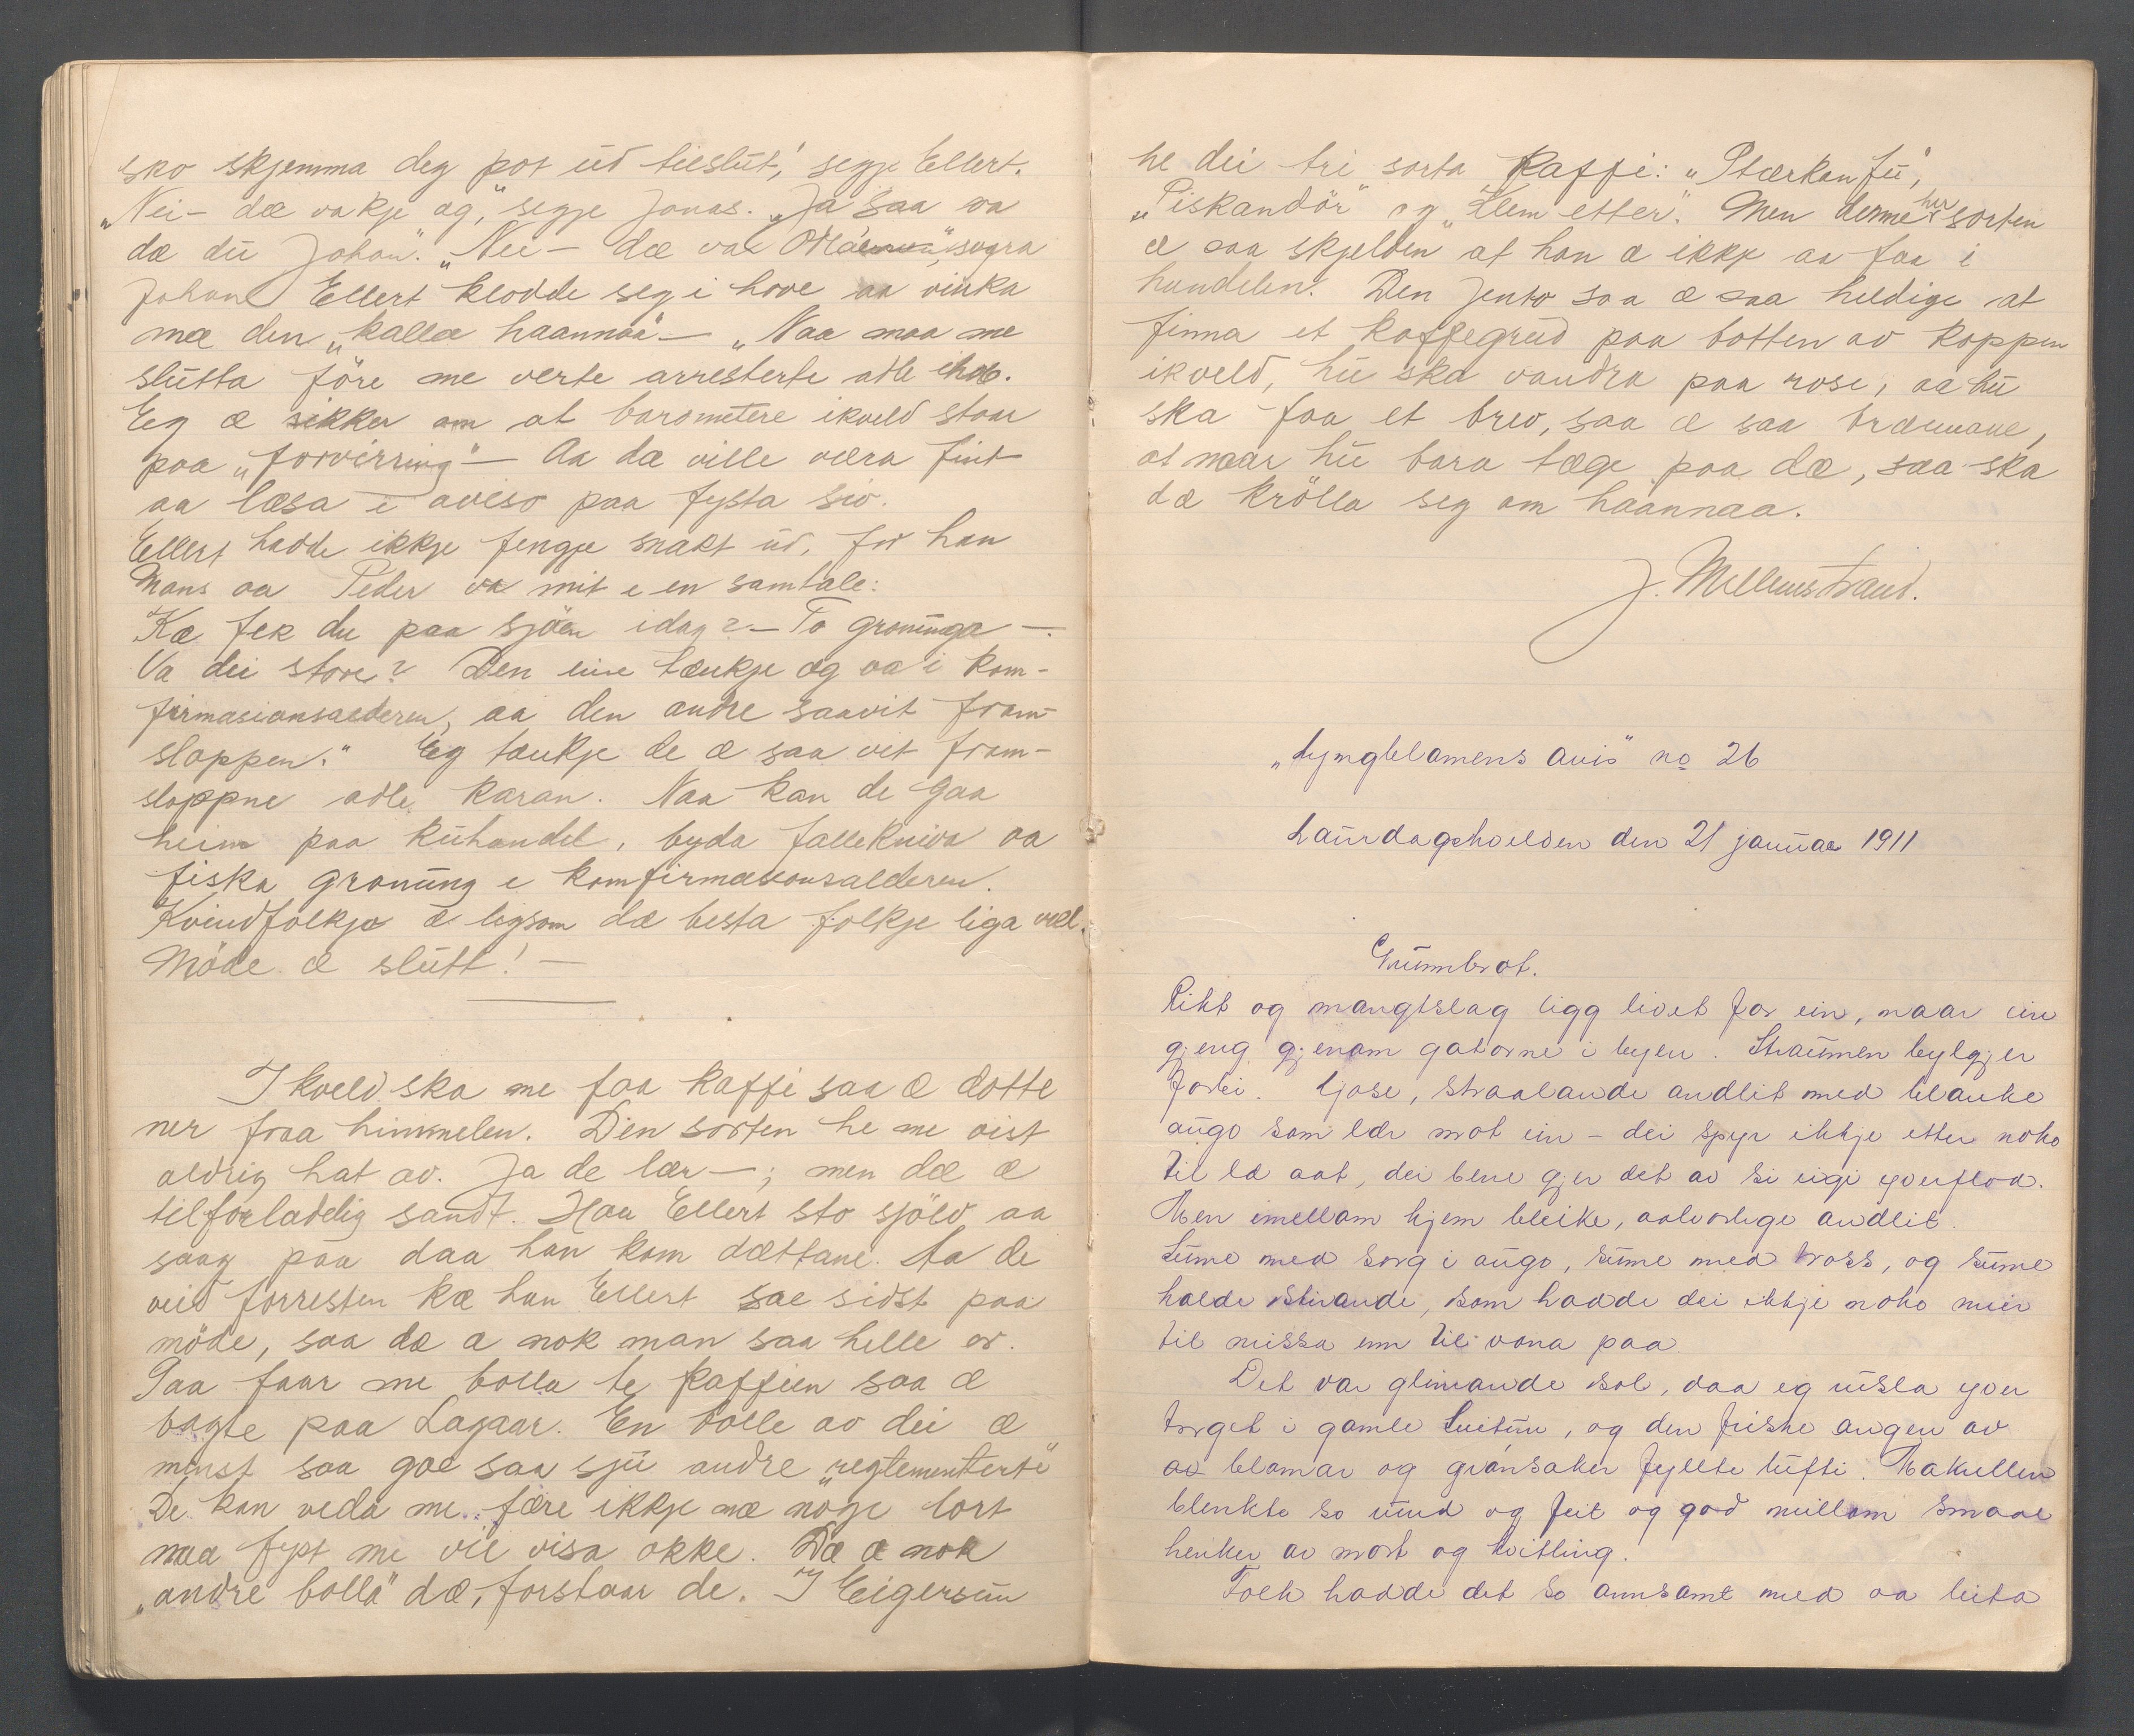 sko skjemma deg pot ud tieslut," segje Ellert.
"Nei – dæ va kje eg," segje Jonas. "Ja saa va
dæ du Johan". "Nei – dæ va sogra
Johan. Ellert klodde seg i hove aa vinka
mæ den "kalla haannaa" – "Naa maa me
slutta före me verte arresterte adle ihob.
Eg æ sikker om at barometere ikveld staar
paa "forvirring" – Aa da ville væra fint
aa læsa i aviso paa fysta siö.
Ellert hadde ikkje fengje snakt ud, for han
Mons aa Peder va mit i en samtale:
Kæ fek du paa sjöen idag? – To gronunga –.
Va dei store? Den eine tænkje eg va i kom-
firmasionsalderen, aa den andre saavit fram-
sloppen." Eg tænkje de æ saa vit fram-
sloppne adle karan. Naa kan de gaa
heim paa kuhandel, byda fallekniva aa
fiska gronung i komfirmasionsalderen.
Kvindfolkje æ ligsom dæ besta folkje liga vel.
Möde æ slutt! –
I kveld ska me faa kaffi saa æ dotte
ner fraa himmelen. Den sorten he me vist
aldrig hat av. Ja de lær –; men dæ æ
tilforladelig sandt. Han Ellert sto sjölv aa
saag paa daa han kom dættane. Aa de
veid forresten kæ han Ellert sae sidst paa
möde, saa dæ æ nok man saa helle or.
Saa faar me bolla te kaffien saa æ
bagte paa Lagaar. En bolle av dei æ
minst saa goe saa sju andre "reglementerte"
De kan veda me fære ikkje mæ nöge lort
naa fyst me vil visa okke. Dæ æ nok
"andre bolla" dæ, forstaar de. I Eigersun
he dei tri sorta kaffi: "Stærkan fu",
"Piskandör" og "Klem etter". Men denne her sorten
æ saa skjelden at han æ ikkje aa faa i
handelen. Den jento saa æ saa heldige at
finna et kaffegrud paa botten av koppen
ikveld, hu ska vandra paa rose, aa hu
ska faa et brev, saa æ saa brænnane,
at naar hu bara tæge paa dæ, saa ska
dæ krölla seg om haannaa.
J. Mellemstrand.
"Lyngblomens avis" no 26
Laurdagskvelden den 21 januar 1911
Grunnbrot.
Rikt og mangtslag ligg livet for ein, naar ein
gjeng gjenom gatorne i byen. Straumen bylgjer
forbi. Ljose, straalande andlit med blanke
augo som lær mot ein – dei spyr ikkje etter noko
til læ aat, dei bere gjer det av si eigi yverflod.
Men imellom kjem bleike, aalvorlege andlit.
Sume med sorg i augo, sume med tross, og sume
halde stirande, som hadde dei ikkje noko meir
til missa enn til vona paa.
Det var glimande sol, daa eg rusla yver
torget i gamle , og den friske angen av
av blomar og grønsaker fyllte lufti. Makullen
blenkte so rund og feit og god millom smaae
henker av mort og kvitling.
Folk hadde det so annsamt med aa leita